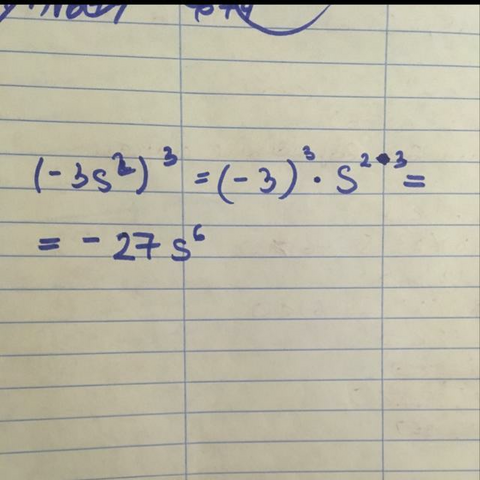 (-3s²)³ = (-3)³ · s²•³ =
= - 27 s⁶